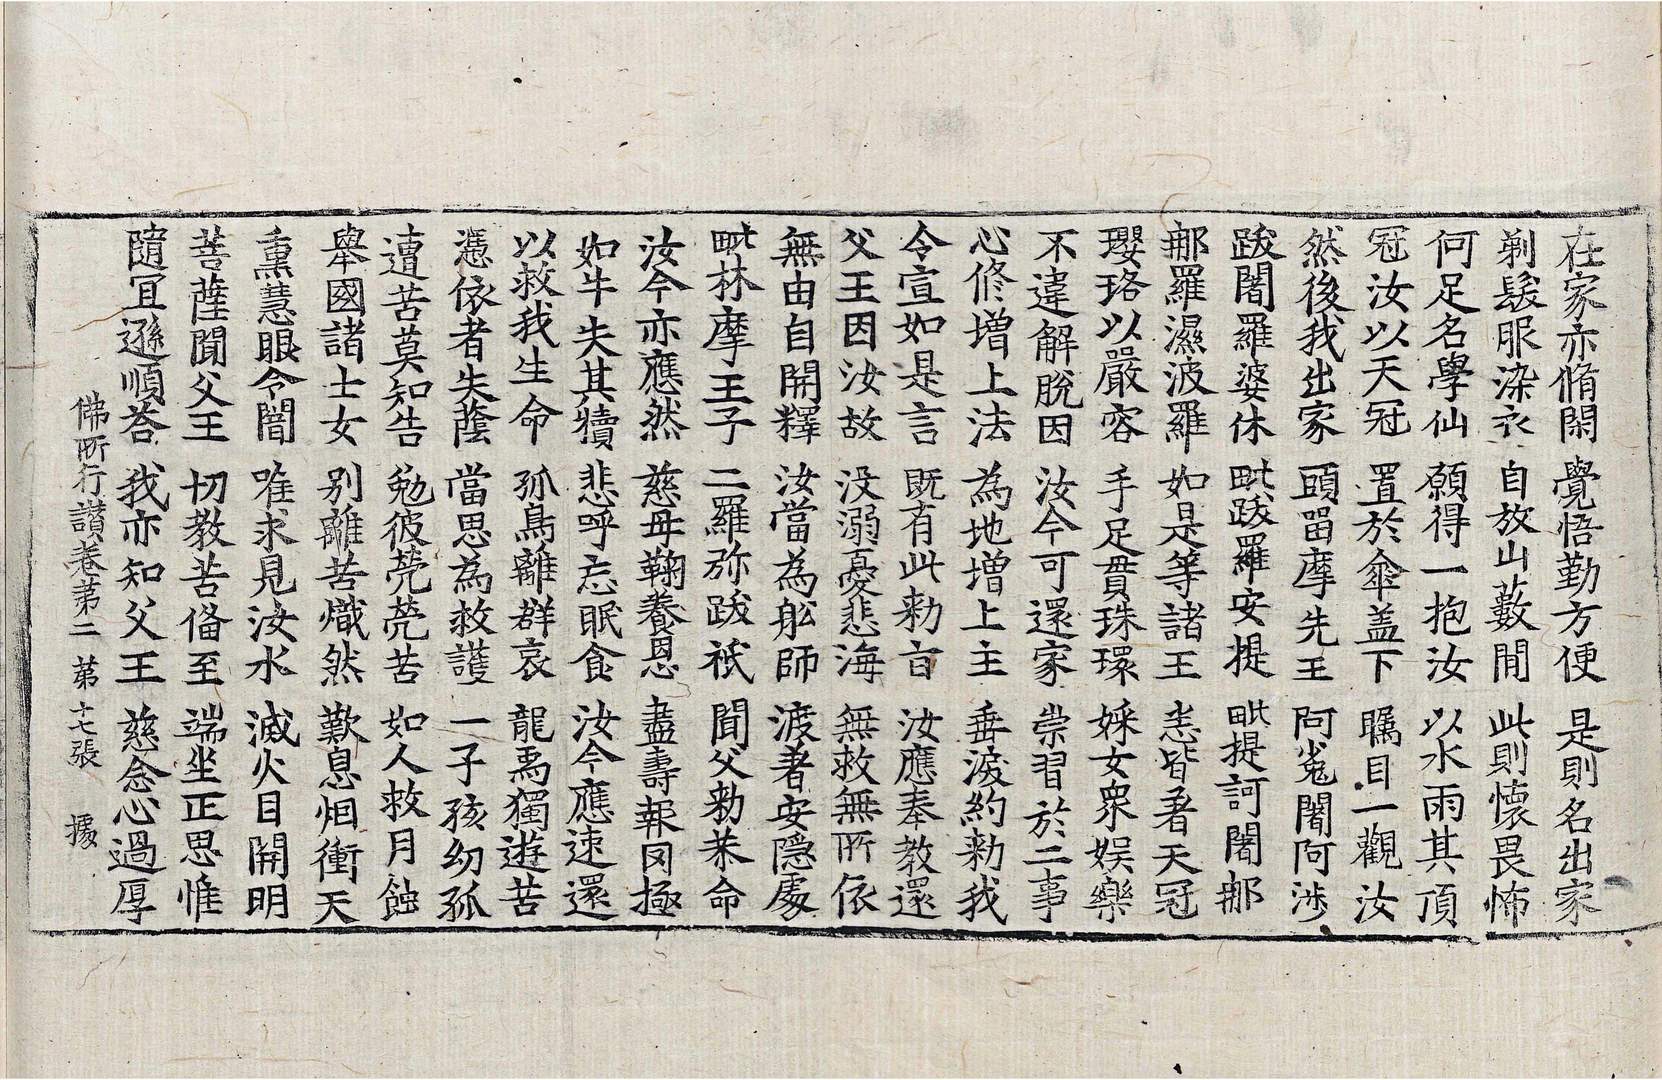 在家亦脩閑 覺悟勤方便 是則名出家
剃髮服染衣 自放山藪閒 此則懷畏怖
何足名學仙 願得一抱汝 以水雨其頂
冠汝以天冠 置於傘盖下 矚目一觀汝
然後我出家 頭留摩先王 阿㝹闍阿涉
跋闍羅婆休 毗跋羅安提 毗提訶闍那
那羅濕波羅 如是等諸王 悉皆著天冠
瓔珞以嚴容 手足貫珠環 婇女衆娛樂
不違解脫因 汝今可還家 崇習於二事
心修增上法 為地增上主 垂淚約勑我
令宣如是言 既有此勑旨 汝應奉教還
父王因汝故 没溺憂悲海 無救無所依
無由自開釋 汝當為舩師 渡著安隱處
毗林摩王子 二羅弥跋祇 聞父勑恭命
汝今亦應然 慈母鞠養恩 盡壽報罔極
如牛失其犢 悲呼忘眠食 汝今應速還
以救我生命 孤鳥離群哀 龍象獨遊苦
憑依者失蔭 當思為救護 一子孩幼孤
遭苦莫知告 勉彼煢煢苦 如人救月蝕
舉國諸士女 別離苦熾然 歎息烟衝天
熏慧眼令闇 唯求見汝水 滅火目開明
菩薩聞父王 切教苦俻至 端坐正思惟
隨冝遜順荅 我亦知父王 慈念心過厚
佛所行讃卷苐二 苐十七張 㨿